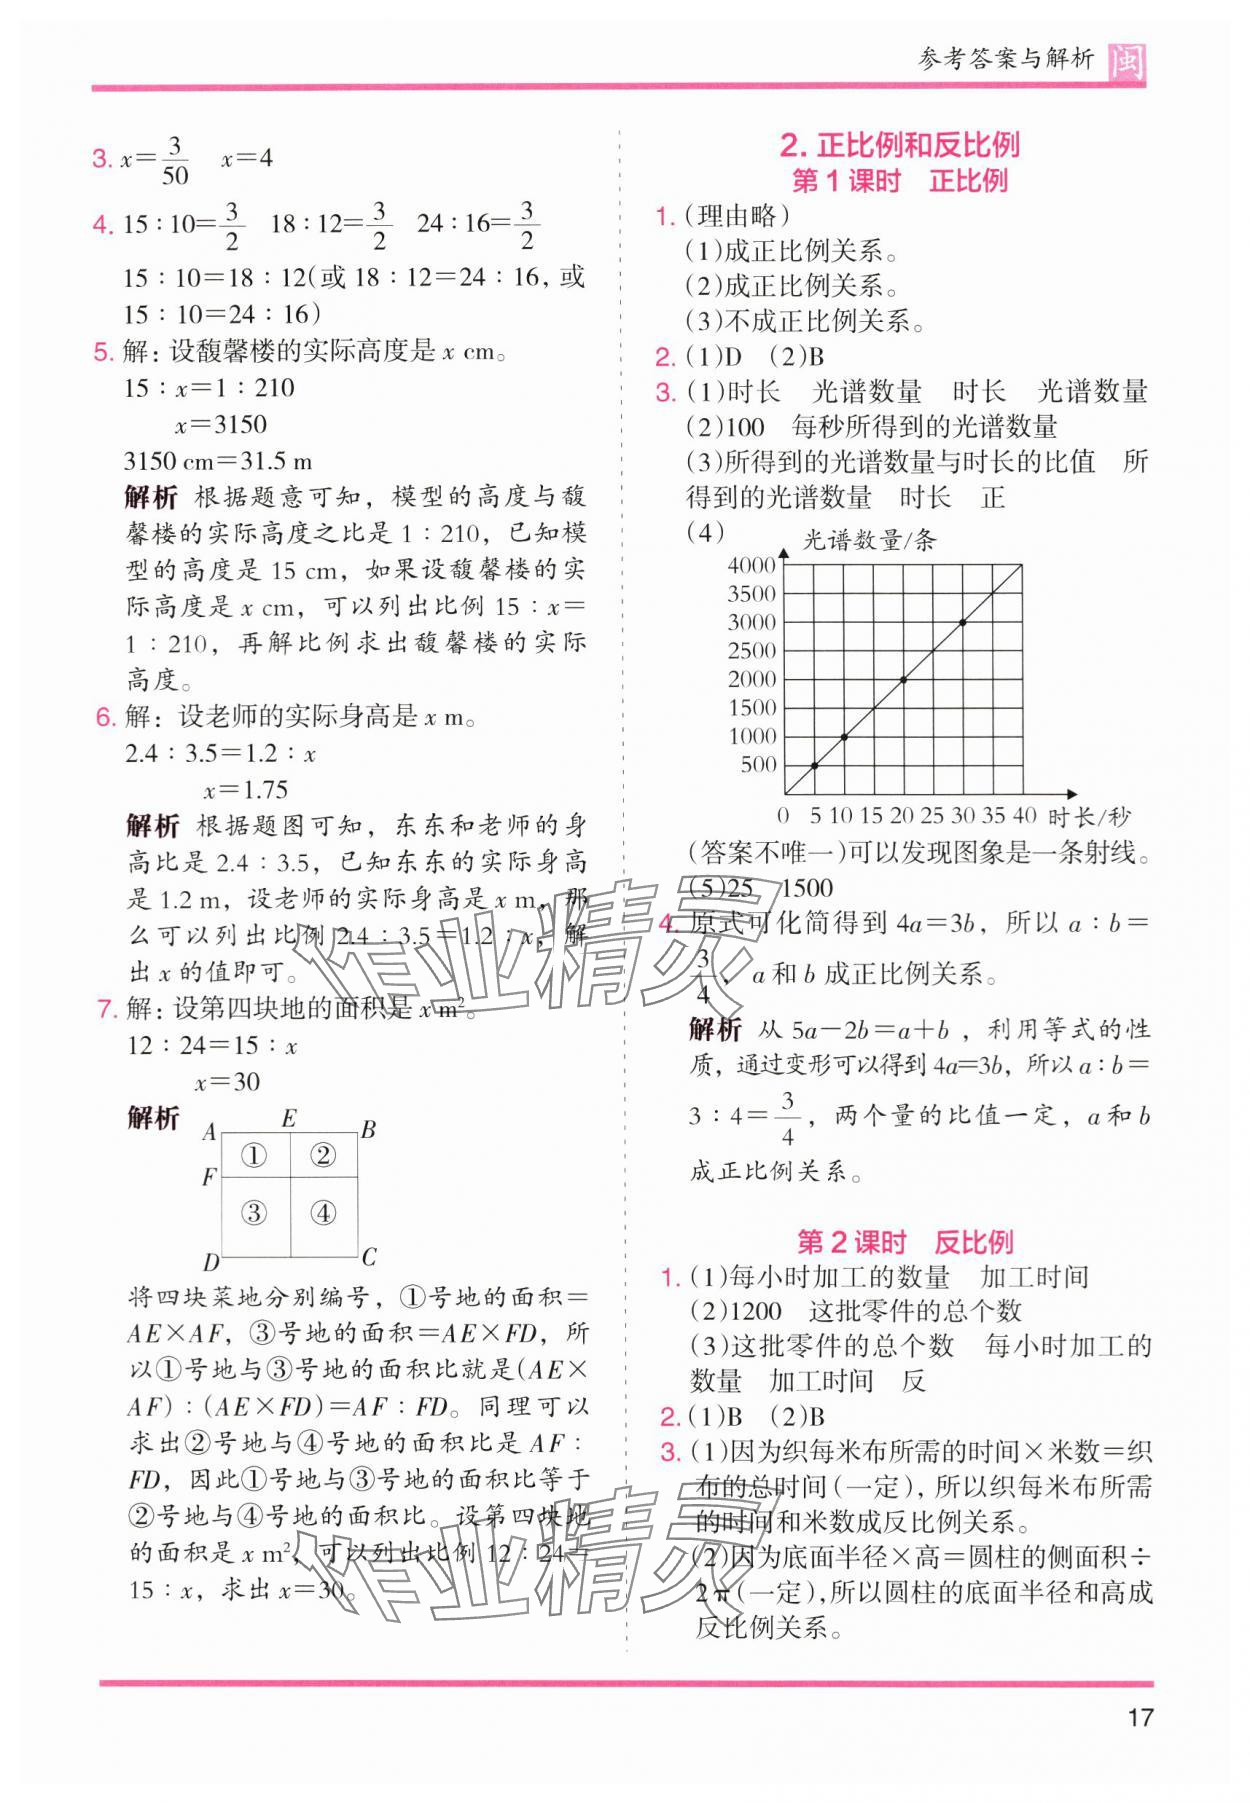 参考答案与解析 闽
3. x=3/50 x=4
4. 15∶10=3/2 18∶12=3/2 24∶16=3/2
15∶10=18∶12(或18∶12=24∶16,或
15∶10=24∶16)
5. 解:设馥馨楼的实际高度是 x cm。
15∶x=1∶210
x=3150
3150 cm=31.5 m
解析 根据题意可知,模型的高度与馥
馨楼的实际高度之比是1∶210,已知模
型的高度是15 cm,如果设馥馨楼的实
际高度是 x cm,可以列出比例15∶x=
1∶210,再解比例求出馥馨楼的实际
高度。
6. 解:设老师的实际身高是 x m。
2.4∶3.5=1.2∶x
x=1.75
解析 根据题图可知,东东和老师的身
高比是2.4∶3.5,已知东东的实际身高
是1.2 m,设老师的实际身高是 x m,那
么可以列出比例2.4∶3.5=1.2∶x,解
出 x 的值即可。
7. 解:设第四块地的面积是 x m²。
12∶24=15∶x
x=30
解析
A E B
① ②
F
③ ④
D C
将四块菜地分别编号,①号地的面积=
AE×AF,③号地的面积=AE×FD,所
以①号地与③号地的面积比就是(AE×
AF)∶(AE×FD)=AF∶FD。同理可以
求出②号地与④号地的面积比是AF∶
FD,因此①号地与③号地的面积比等于
②号地与④号地的面积比。设第四块地
的面积是 x m²,可以列出比例12∶24=
15∶x,求出x=30。
2. 正比例和反比例
第1课时 正比例
1. (理由略)
(1)成正比例关系。
(2)成正比例关系。
(3)不成正比例关系。
2. (1)D (2)B
3. (1)时长 光谱数量 时长 光谱数量
(2)100 每秒所得到的光谱数量
(3)所得到的光谱数量与时长的比值 所
得到的光谱数量 时长 正
(4)
光谱数量/条
4000
3500
3000
2500
2000
1500
1000
500
0 5 10 15 20 25 30 35 40 时长/秒
(答案不唯一)可以发现图象是一条射线。
(5)25 1500
4. 原式可化简得到4a=3b,所以a∶b=
3/4,a和b成正比例关系。
解析 从5a-2b=a+b,利用等式的性
质,通过变形可以得到4a=3b,所以a∶b=
3∶4=3/4,两个量的比值一定,a和b
成正比例关系。
第2课时 反比例
1. (1)每小时加工的数量 加工时间
(2)1200 这批零件的总个数
(3)这批零件的总个数 每小时加工的
数量 加工时间 反
2. (1)B (2)B
3. (1)因为织每米布所需的时间×米数=织
布的总时间(一定),所以织每米布所需
的时间和米数成反比例关系。
(2)因为底面半径×高=圆柱的侧面积÷
2π(一定),所以圆柱的底面半径和高成
反比例关系。
作业精灵
作业精灵
17